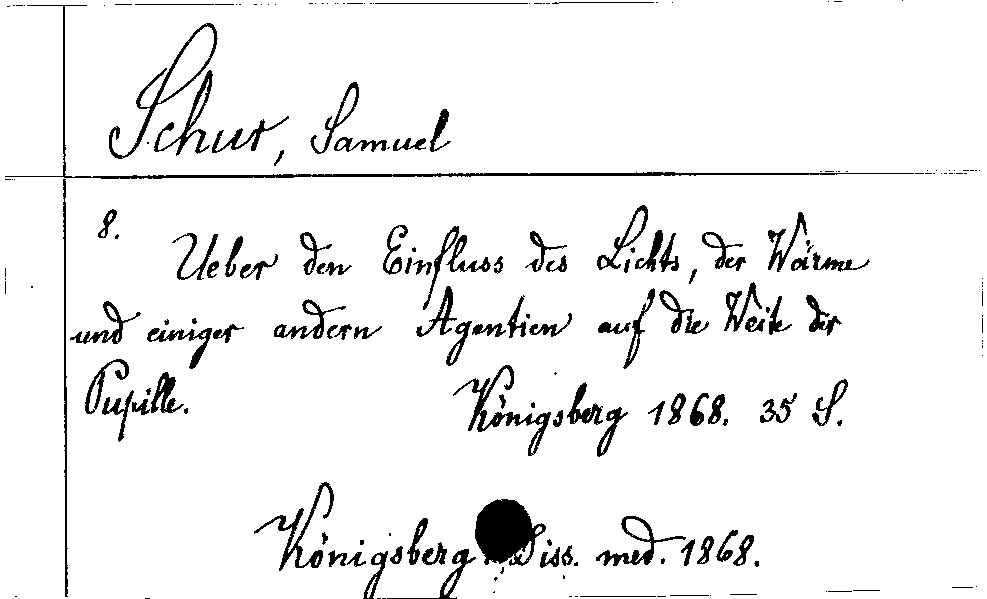 Schur, Samuel
8.
Ueber den Einfluss des Lichts, der Wärme
und einiger andern Agentien auf die Weite der
Pupille. Königsberg 1868. 35 S.
Königsberg Diss. med. 1868.